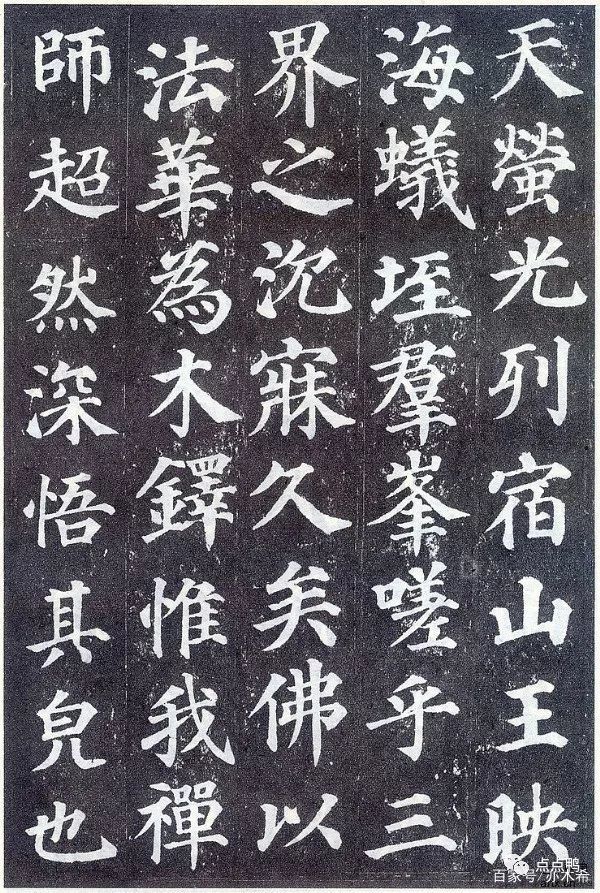 天螢光列宿山王映
海蟻垤羣峯嗟乎三
界之沉寐久矣佛以
法華為木鐸惟我禪
師超然深悟其皃也
点点鸭
百家号/亦木希